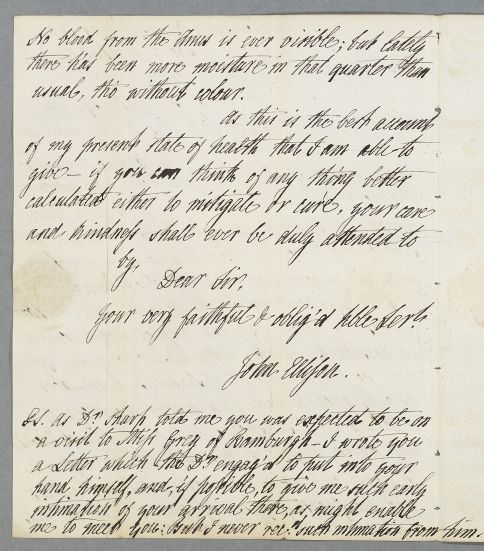 No blood from the Anus is ever visible; but lately
there has been more moisture in that quarter than
usual, tho without colour.
as this is the best account
of my present state of health that I am able to
give — if you can think of any thing better
calculated either to mitigate or cure, your care
and kindness shall ever be duly attended to
by,
Dear Sir,
your very faithful & oblig'd Hble Servt.
John Ellison.
P.S. as Dr Sharp told me you was expected to be on
a visit to Miss Grey of Bamburgh — I wrote you
a Letter which the Dr engag'd to put into your
hand himself, and, if possible, to give me such early
intimation of your arrival there, as might enable
me to meet you: But I never recd such intimation from him.